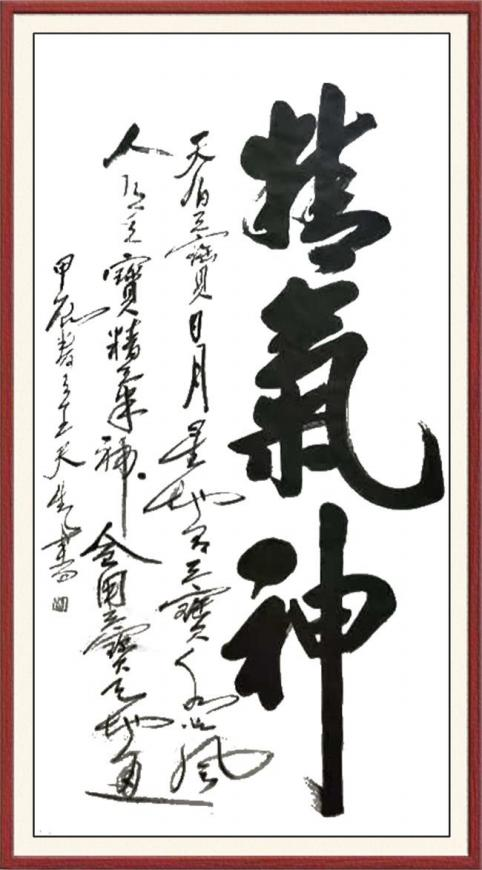 精氣神
天有三寶日月星地有三寶水火風
人有三寶精氣神會用三寶天地通
甲辰春天生書